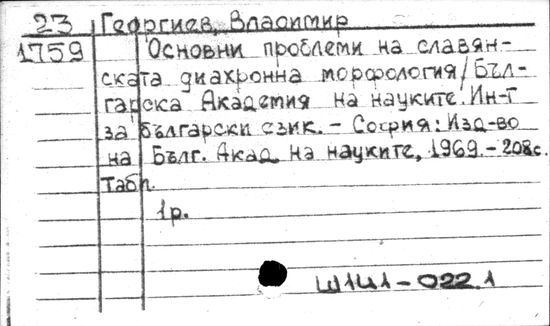 23 Георгиев, Владимир
1759 Основни проблеми на славян-
ската диахронна морфология / Бъл-
гарска Академия на науките. Ин-т
за български език. – София: Изд-во
на Бълг. Акад. на науките, 1969. – 208с.
табл.
1р.
Ш1Ч1-022.1